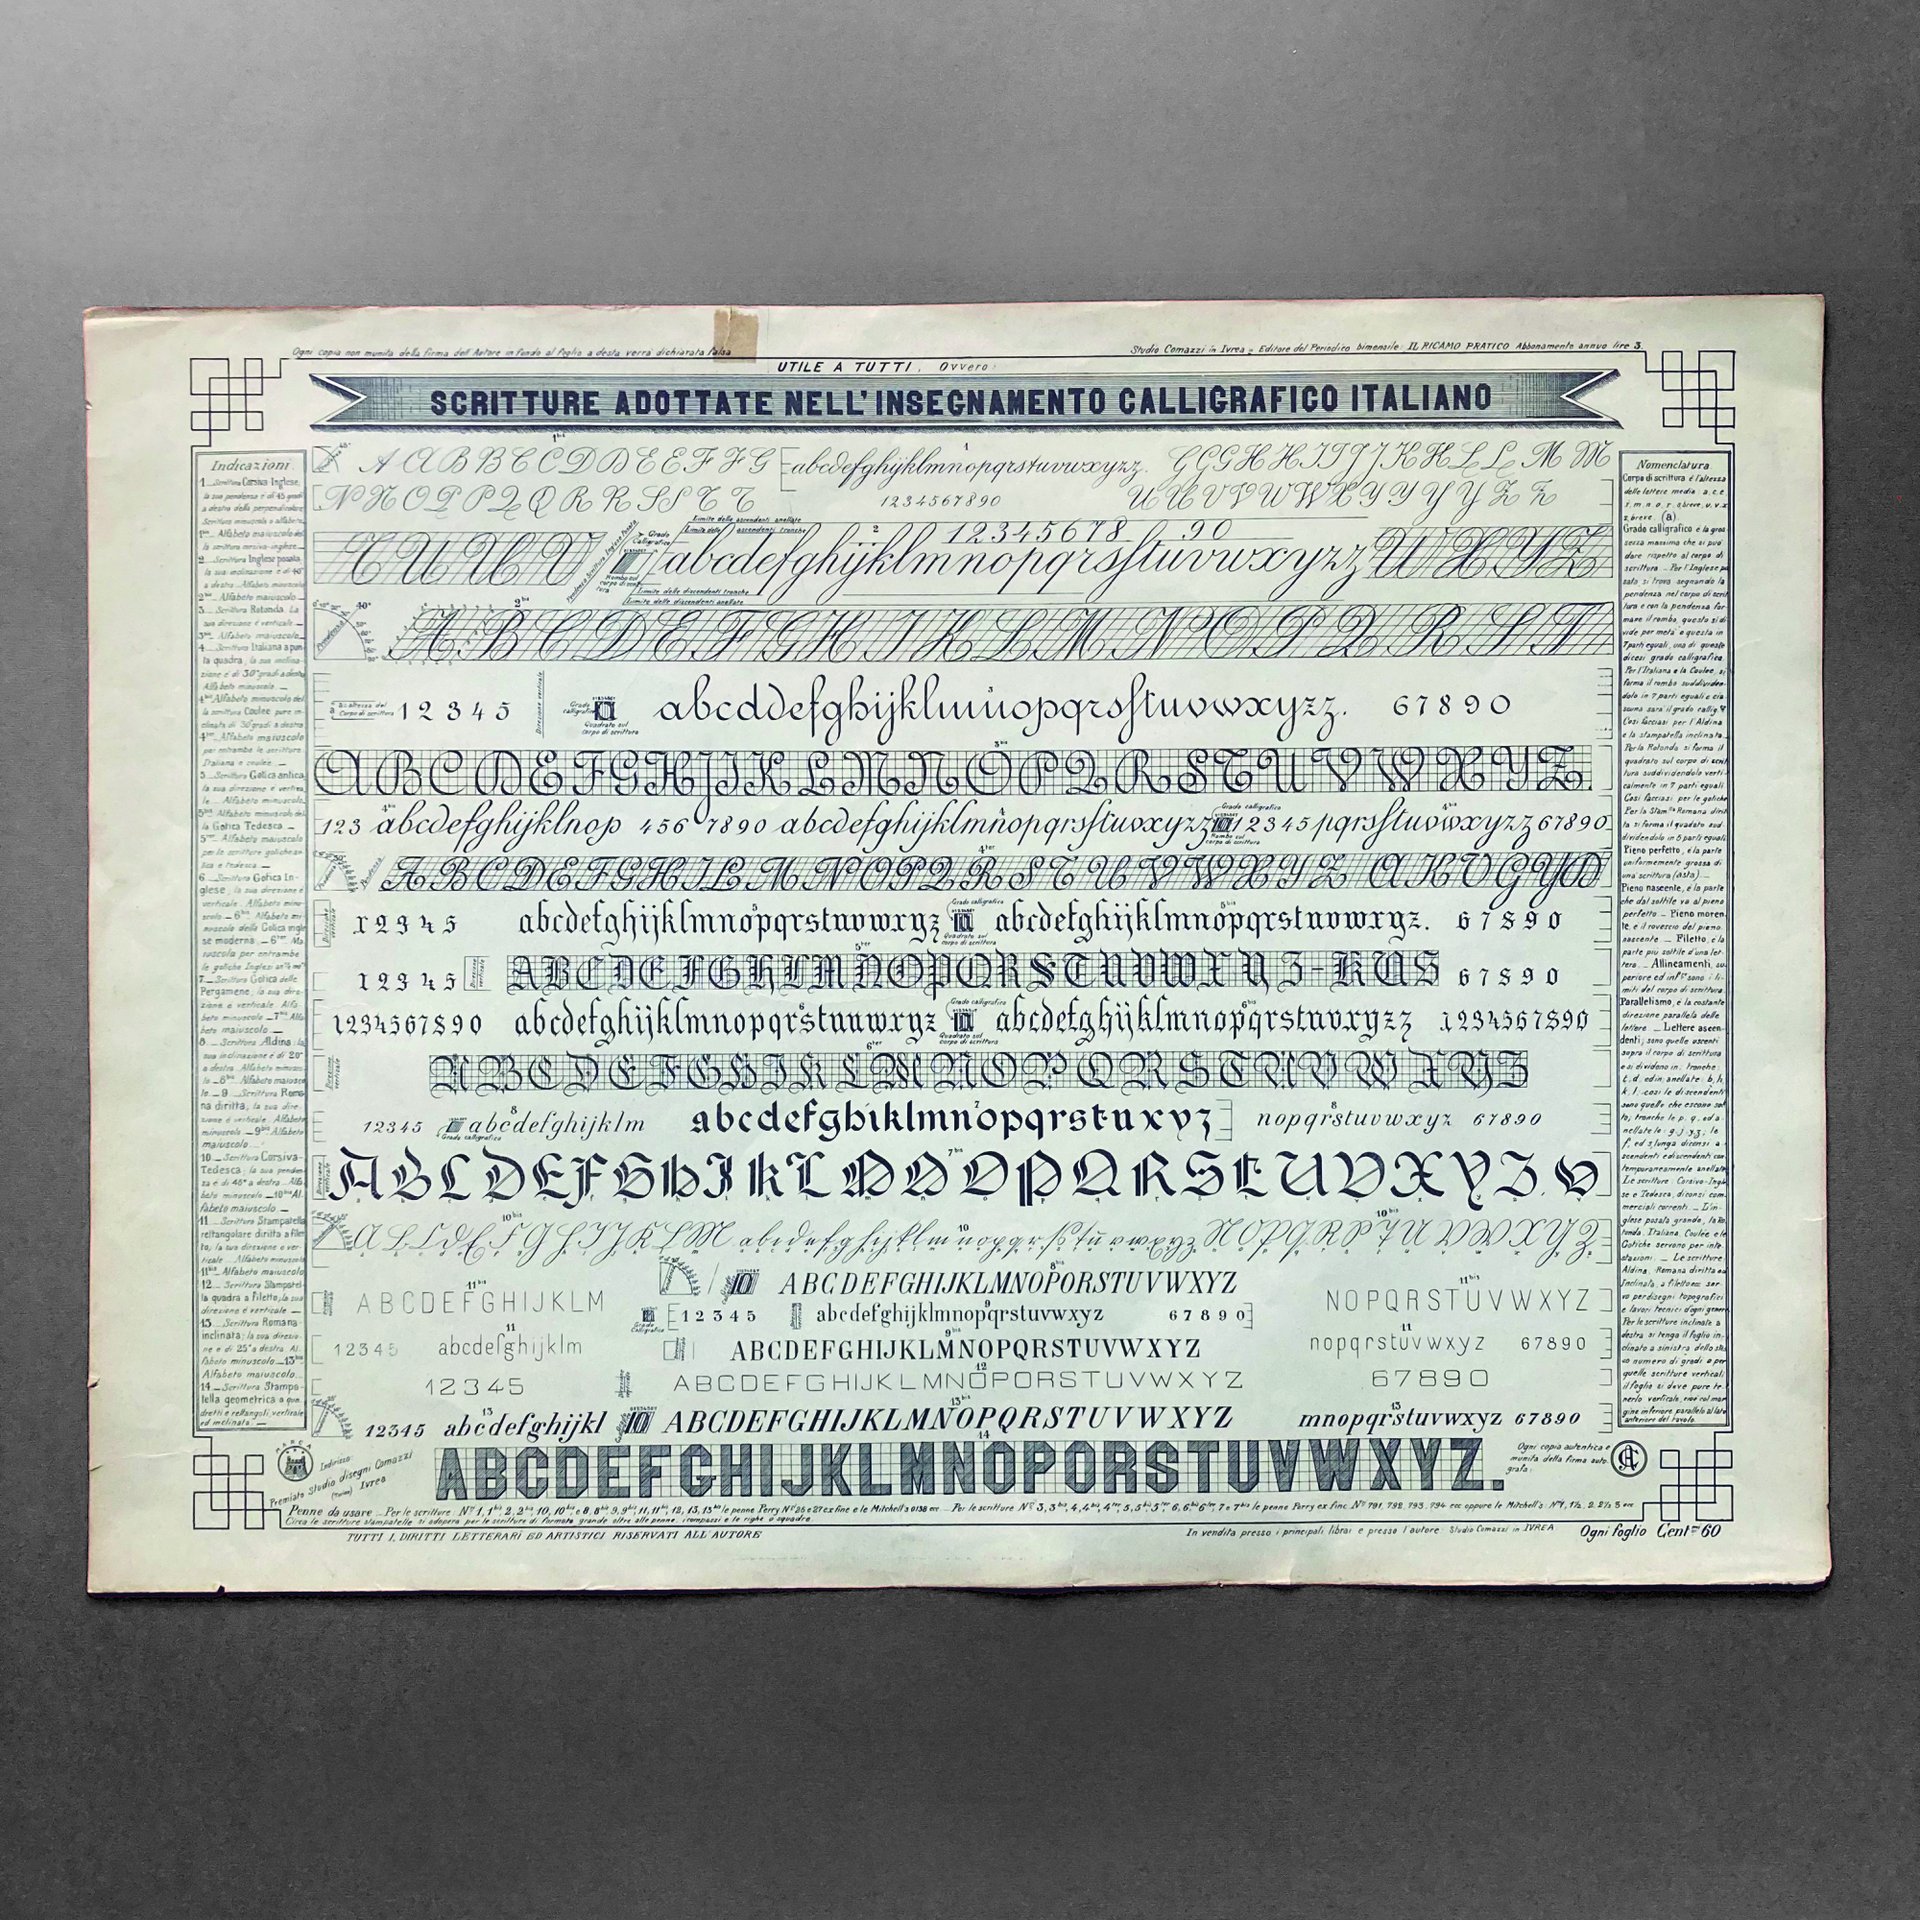 Ogni copia non munita della firma dell'Autore in fondo al foglio a destra verrà dichiarata falsa
Studio Comazzi in Ivrea - Editore del Periodico bimensile: IL RICAMO PRATICO Abbonamento annuo lire 3.
UTILE A TUTTI, Ovvero:
SCRITTURE ADOTTATE NELL'INSEGNAMENTO CALLIGRAFICO ITALIANO
Indicazioni.
1 _ Scrittura Corsiva Inglese,
la sua pendenza è di 45 gradi
a destra della perpendicolare
Scrittura minuscola o alfabeto.
1bis Alfabeto maiuscolo del
la scrittura corsiva-inglese.
2 _ Scrittura Inglese posata,
a destra _ Alfabeto minuscolo
2bis Alfabeto maiuscolo _
3 _ Scrittura Rotonda. La
sua direzione è verticale _
3bis Alfabeto maiuscolo _
4 _ Scrittura Italiana a pun
ta quadra, la sua inclina
zione è di 30 gradi a destra
Alfabeto minuscolo _
4bis Alfabeto minuscolo del
la scrittura Coulée pure in
clinata di 30 gradi a destra
4ter Alfabeto maiuscolo
per entrambe le scritture
Italiana e coulée _
5 _ Scrittura Gotica antica,
la sua direzione è vertica
le _ Alfabeto minuscolo
5bis Alfabeto minuscolo del
la Gotica Tedesca _
5ter Alfabeto maiuscolo
per le scritture gotiche an
tica e tedesca _
6 _ Scrittura Gotica In-
glese, la sua direzione è
verticale. Alfabeto minu
scolo _ 6bis Alfabeto mi
nuscolo della Gotica ingle
se moderna _ 6ter Ma
iuscola per entrambe
7 _ Scrittura Gotica delle
Pergamene, la sua dire
zione è verticale. Alfa
beto minuscolo _ 7bis Alfa
beto maiuscolo _
8 _ Scrittura Aldina: la
sua inclinazione è di 20°
a destra _ Alfabeto minusco
lo _ 8bis Alfabeto maiusco
lo _ 9 _ Scrittura Roma
na diritta, la sua dire
zione è verticale. Alfabeto
minuscolo _ 9bis Alfabeto
maiuscolo _
10 _ Scrittura Corsiva-
Tedesca; la sua penden
za è di 45° a destra _ Alfa
beto minuscolo _ 10bis Al
fabeto maiuscolo _
11 _ Scrittura Stampatella
rettangolare diritta a filet
to, la sua direzione è ver
ticale _ Alfabeto minuscolo
11bis Alfabeto maiuscolo
12 _ Scrittura Stampatel
la quadra a filetto; la sua
direzione è verticale _
13 _ Scrittura Romana
inclinata; la sua direzio
ne è di 25° a destra. Al
fabeto minuscolo _ 13bis
Alfabeto maiuscolo _
14 _ Scrittura Stampa
tella geometrica a qua
dretti e rettangoli, verticale
ed inclinata _
1bis
A A B B C C D D E E F F G
1
abcdefghijklmnopqrstuvwxyzz.
G G H H I I J J K K L L M M
N N O P P Q Q R R S S T T
1 2 3 4 5 6 7 8 9 0
U U V V W W X Y Y Y Y Z Z
T U U U V
Pendenza Scrittura Inglese Posata
Grado Calligrafico
Rombo sul corpo di scrittura
Limite delle ascendenti anellate
Limite delle ascendenti tronche
2
1 2 3 4 5 6 7 8 9 0
abcdefghijklmnopqrsstuvwxyzz
W X Y Z
Limite delle discendenti tronche
Limite delle discendenti anellate
Pendenza
40°
2bis
A B C D E F G H I K L M N O P Q R S T
a = altezza del Corpo di scrittura
1 2 3 4 5
Direzione verticale
Grado calligrafico
Quadrato sul corpo di scrittura
3
abcddefghijklmnopqrsstuvwxyzz.
6 7 8 9 0
3bis
A B C D E F G H J I K L M N O P Q R S T U V W X Y Z.
1 2 3
4bis
abcdefghijklnop
4 5 6 7 8 9 0
4
abcdefghijklmnopqrsstuvxyzz
Grado calligrafico
Rombo sul corpo di scrittura
1 2 3 4 5
4bis
pqrsstuvwxyzz
6 7 8 9 0
Pendenza
4ter
A B C D E F G H I L M N O P Q R S T U V W X Y Z A K V G Y D
Direzione verticale
1 2 3 4 5
5
abcdefghijklmnopqrstuvwxyz
Grado calligrafico
Quadrato sul corpo di scrittura
5bis
abcdefghijklmnopqrstuvwxyz.
6 7 8 9 0
1 2 3 4 5
Direzione verticale
5ter
A B C D E F G H I L M N O P Q R S T U V W X Y Z - K U S
6 7 8 9 0
1 2 3 4 5 6 7 8 9 0
6
abcdefghijklmnopqrstuvwxyz
Grado calligrafico
Quadrato sul corpo di scrittura
6bis
abcdefghijklmnopqrstuvxyzz
1 2 3 4 5 6 7 8 9 0
Direzione verticale
6ter
A B C D E F G H I K L M N O P Q R S T U V W X Y Z
1 2 3 4 5
Grado calligrafico
8
abcdefghijklm
7
abcdefghiklmnopqrstuxyz
8
nopqrstuvwxyz
6 7 8 9 0
Direzione verticale
7bis
A B C D E F G H I K L M N O P Q R S T U V X Y Z
10bis
A B C D E F G H I J K L M
10
abcdefghijklmnopqrsstuvwxyz
10bis
N O P Q R S T U V W X Y Z
8bis
ABCDEFGHIJKLMNOPQRSTUVWXYZ
11bis
ABCDEFGHIJKLM
Grado Calligrafico
1 2 3 4 5
9
abcdefghijklmnopqrstuvwxyz
6 7 8 9 0
11bis
NOPQRSTUVWXYZ
12345
11
abcdefghijklm
9bis
ABCDEFGHIJKLMNOPQRSTUVWXYZ
11
nopqrstuvwxyz
67890
12345
12
ABCDEFGHIJKLMNOPQRSTUVWXYZ
67890
12345
13
abcdefghijkl
13bis
ABCDEFGHIJKLMNOPQRSTUVWXYZ
13
mnopqrstuvwxyz 67890
14
ABCDEFGHIJKLMNOPQRSTUVWXYZ.
Nomenclatura.
Corpo di scrittura è l'altezza
delle lettere media a, c, e,
z, breve. (a)
Grado calligrafico è la gros
sezza massima che si può
dare rispetto al corpo di
scrittura _ Per l'Inglese po
sata si trova segnando la
pendenza nel corpo di scrit
tura e con la pendenza for
mare il rombo, questo si di
vide per metà e questa in
7 parti eguali, una di queste
dicesi grado calligrafico.
Per l'Italiana e la Coulée, si
forma il rombo suddividen
dolo in 7 parti eguali e cia
scuna sarà il grado callig.co
Così facciasi per l'Aldina
e la stampatella inclinata.
Per la Rotonda si forma il
quadrato sul corpo di scrit
tura suddividendolo verti
calmente in 7 parti eguali
Così facciasi per le gotiche
Pieno perfetto, è la parte
uniformemente grossa di
una scrittura (asta) _
Pieno nascente, è la parte
che dal sottile va al pieno
perfetto _ Pieno moren
te, è il rovescio del pieno
nascente _ Filetto, è la
parte più sottile d'una let
tera _ Allineamenti, su
periore ed inf.re sono i li
miti del corpo di scrittura
Parallelismo, è la costante
direzione parallela delle
lettere _ Lettere ascen
denti; sono quelle uscenti
sopra il corpo di scrittura
e si dividono in: tronche:
t, d, ed in; anellate: b, h,
k, l, _ così le discendenti
sono quelle che escono sot
to; tronche le p, q, ed a
nellate le: g, j, y, z; la
f, ed s, lunga diconsi a
scendenti e discendenti con
temporaneamente anellate
Le scritture Corsivo-Ingle
se e Tedesca, diconsi com
merciali correnti _ L'in
glese posata grande, la Ro
tonda, Italiana, Coulée e le
Gotiche servono per inte
stazioni _ Le scritture
Aldina, Romana diritta ed
inclinata, a filetto ecc. ser
vo per disegni topografici
e lavori tecnici d'ogni genere
Per le scritture inclinate a
destra si tenga il foglio in
clinato a sinistra dello stes
so numero di gradi e per
quelle scritture verticali
il foglio si deve pure te
nerlo verticale, cioè col mar
gine inferiore parallelo al lato
anteriore del tavolo.
MARCA
Indirizzo:
Premiato Studio disegni Comazzi
(Torino) Ivrea
Ogni copia autentica è
munita della firma auto
grafa:
Penne da usare _ Per le scritture N.i 1, 1bis, 2, 2bis, 10, 10bis, e 8, 8bis, 9, 9bis, 11, 11bis, 12, 13, 13bis le penne Perry N.i 26 e 27 ex fine e le Mitchell's 0138 ecc _ Per le scritture N.i 3, 3bis, 4, 4bis, 4ter, 5, 5bis, 5ter, 6, 6bis, 6ter, 7 e 7bis le penne Perry ex fine N.i 791, 792, 793, 794 ecc oppure le Mitchell's N.i 1, 1½, 2, 2½ 3 ecc
Circa le scritture stampatelle si adopera per le scritture di formato grande oltre alle penne, i compassi e le righe a squadra.
TUTTI I DIRITTI LETTERARI ED ARTISTICI RISERVATI ALL'AUTORE
In vendita presso i principali librai e presso l'autore: Studio Comazzi in IVREA
Ogni foglio Cent.mi 60